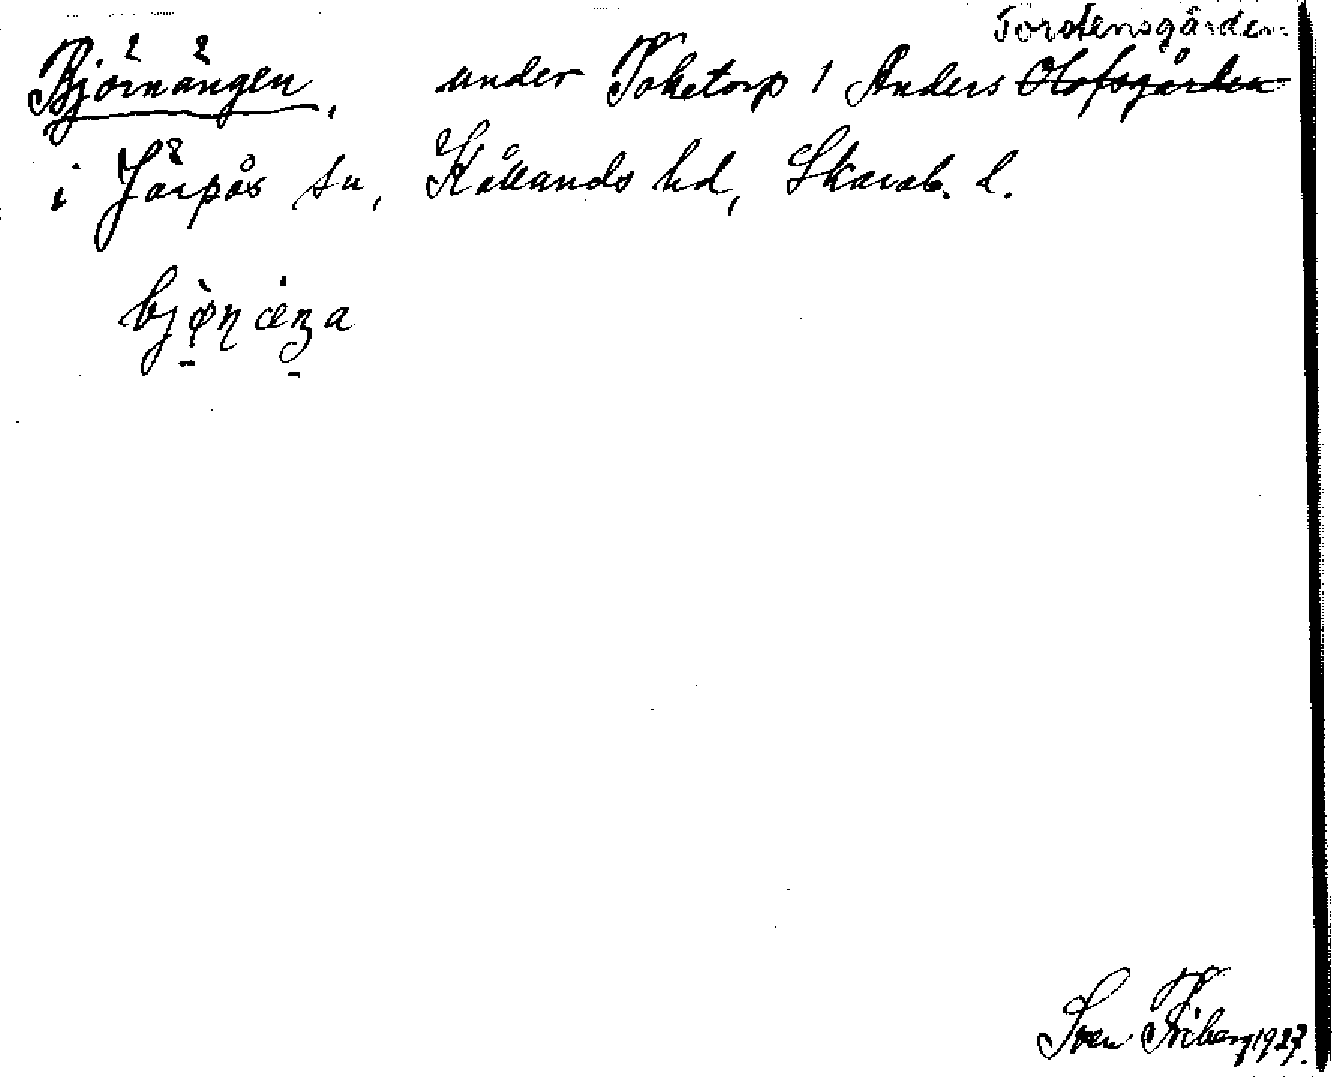 Tordensgården
Björnängen, under Toketorp 1 Anders Olofsgården
i Järpås sn, Kållands hd, Skarab. l.
bjøṇæŋa
Sven Friberg 1927.